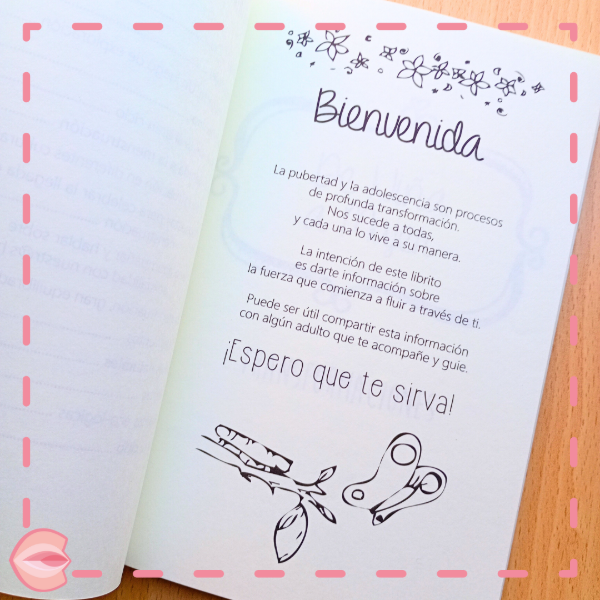 Bienvenida
La pubertad y la adolescencia son procesos
de profunda transformación.
Nos sucede a todas,
y cada una lo vive a su manera.
La intención de este librito
es darte información sobre
la fuerza que comienza a fluir a través de ti.
Puede ser útil compartir esta información
con algún adulto que te acompañe y guie.
¡Espero que te sirva!